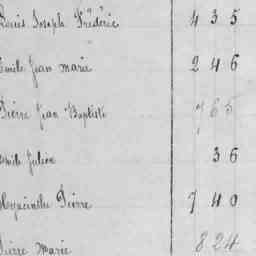 Louis Joseph Frédéric 435
Emile Jean marie 246
Pierre Jean Baptiste 765
Emile Julien 36
Hyacinthe Pierre 740
Pierre Marie 824